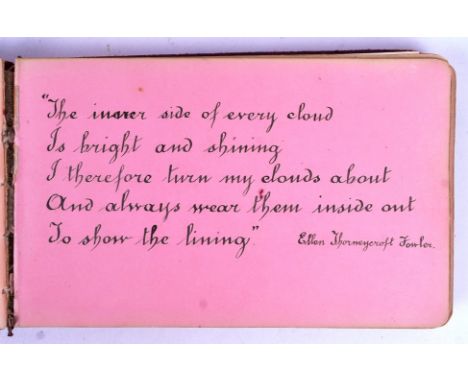 "The inner side of every cloud
Is bright and shining
I therefore turn my clouds about
And always wear them inside out
To show the lining" Ellen Thorneycroft Fowler.